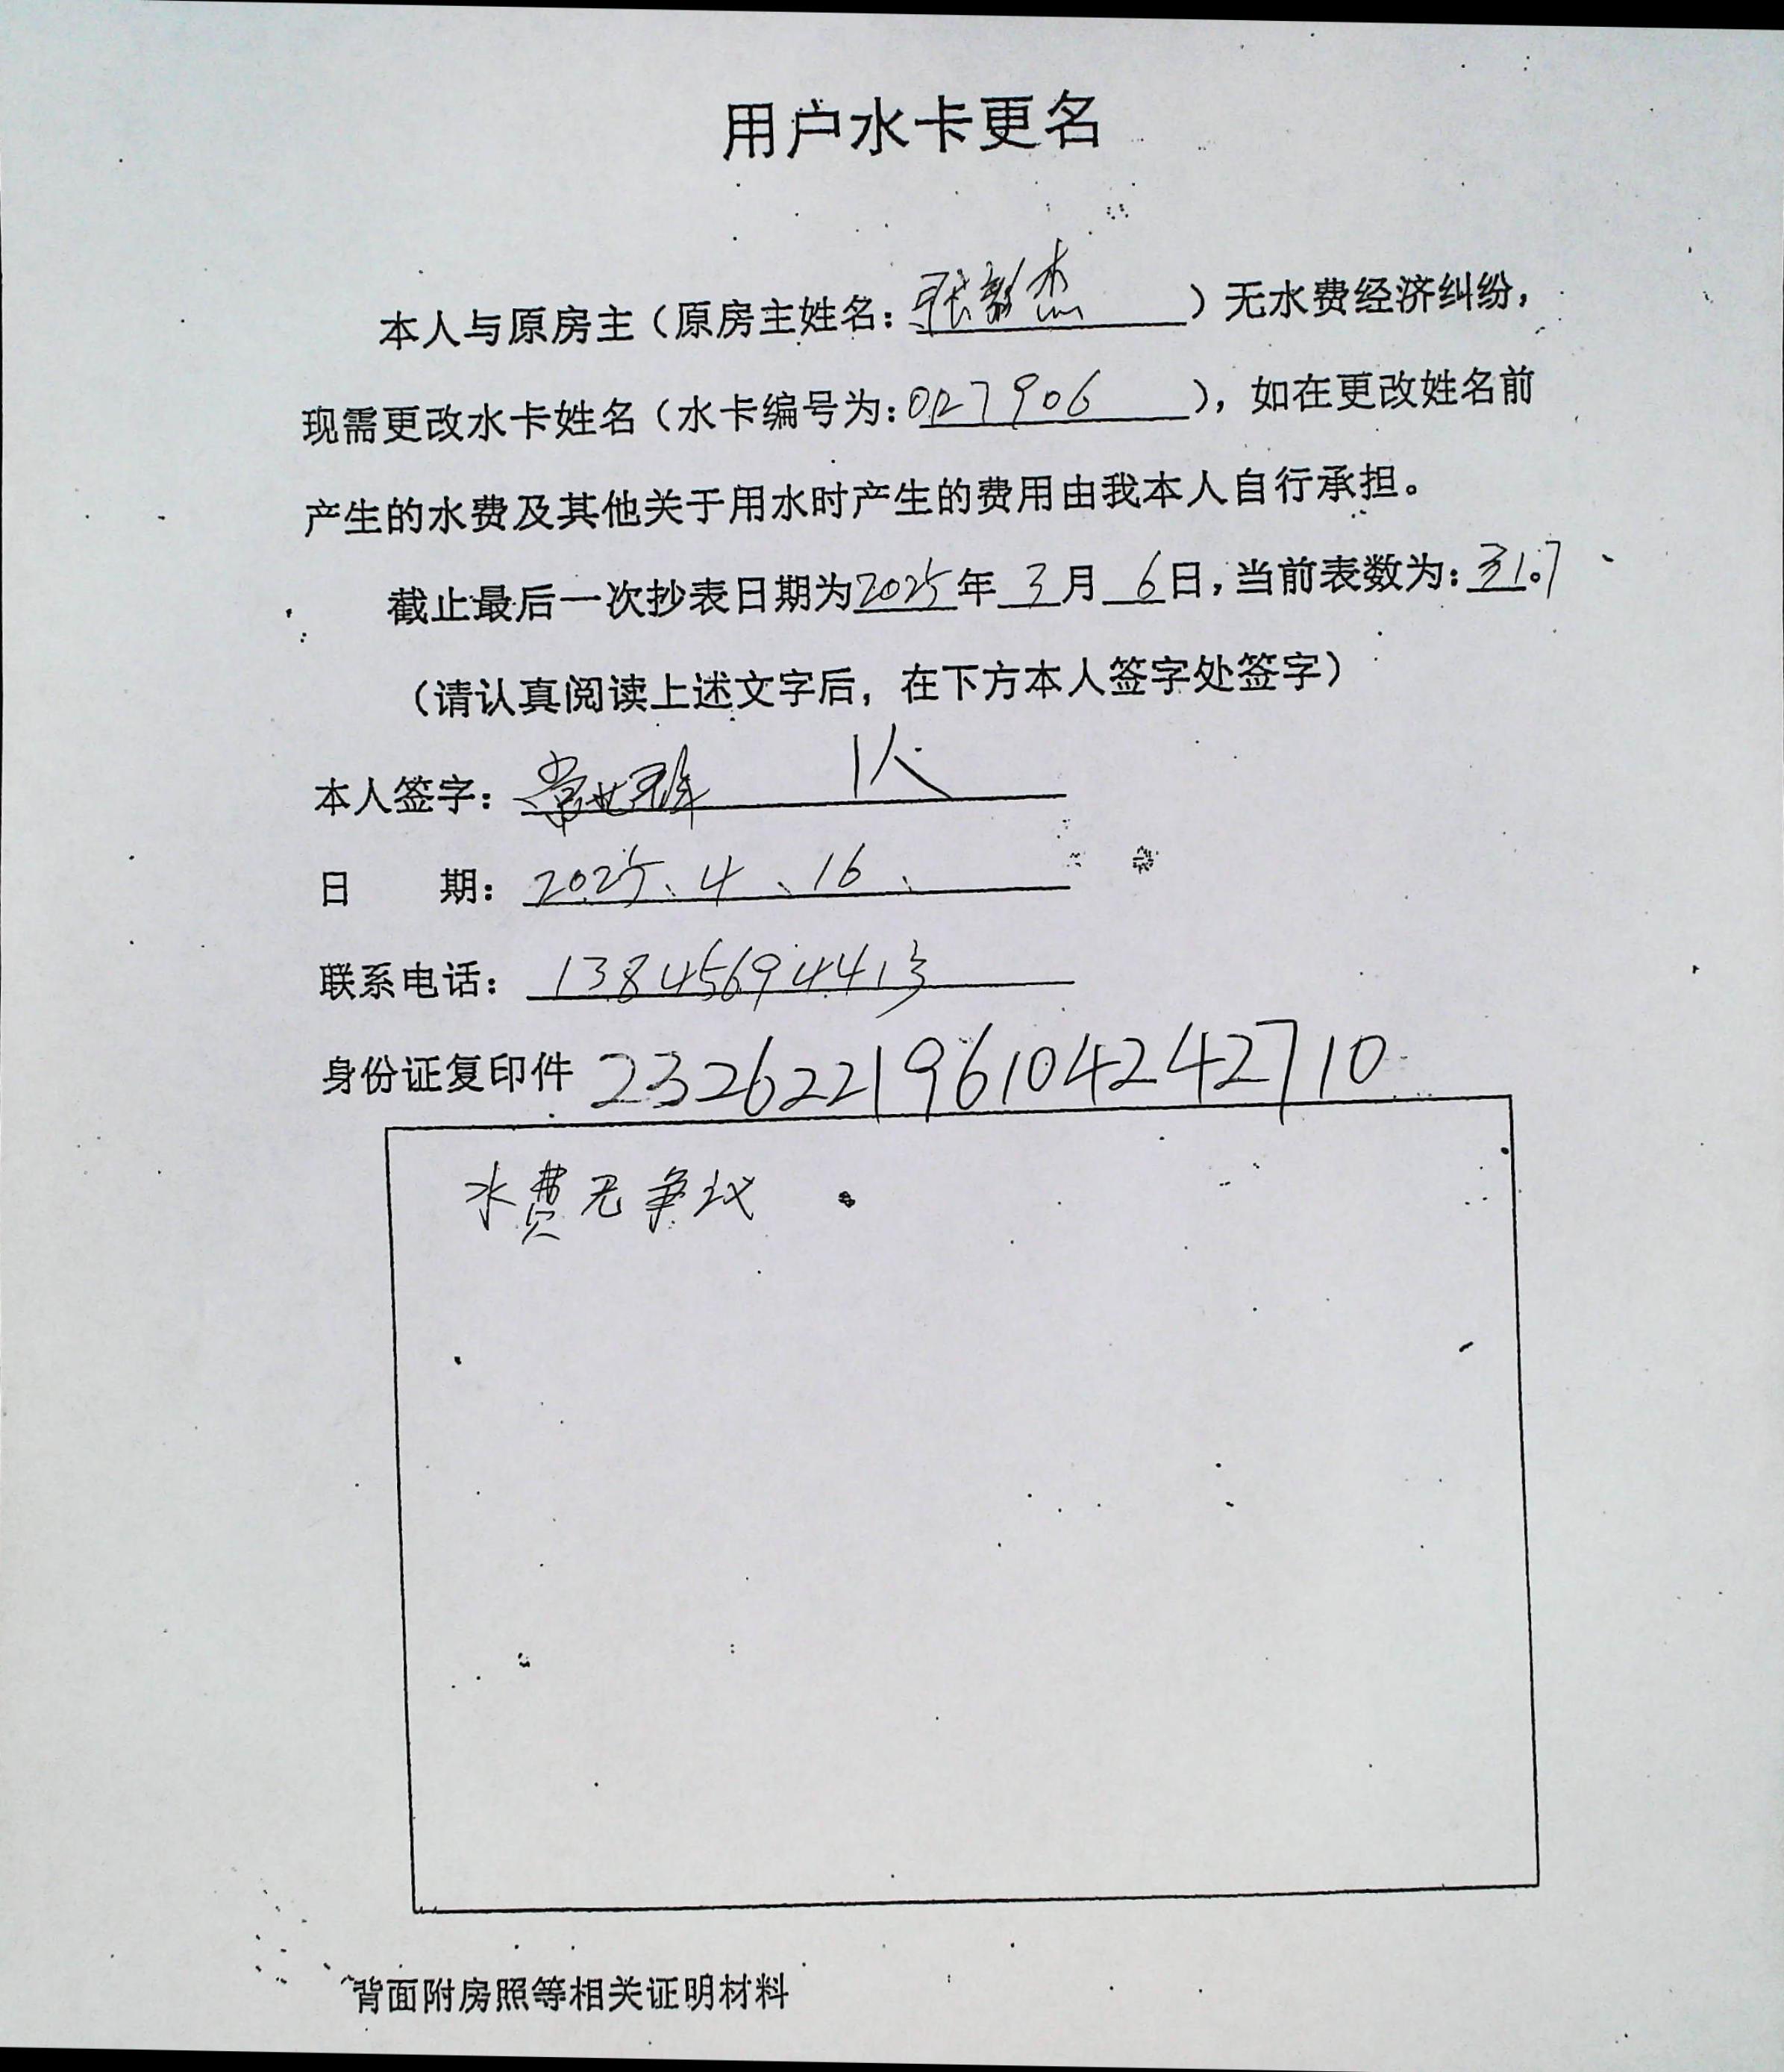 用户水卡更名
本人与原房主（原房主姓名：张彭杰）无水费经济纠纷，
现需更改水卡姓名（水卡编号为：027906），如在更改姓名前
产生的水费及其他关于用水时产生的费用由我本人自行承担。
截止最后一次抄表日期为2025年3月6日，当前表数为：31.7
（请认真阅读上述文字后，在下方本人签字处签字）
本人签字： 1人
日 期：2025、4、16、
联系电话：13845694413
身份证复印件 232622196104242710
水费无争议
背面附房照等相关证明材料